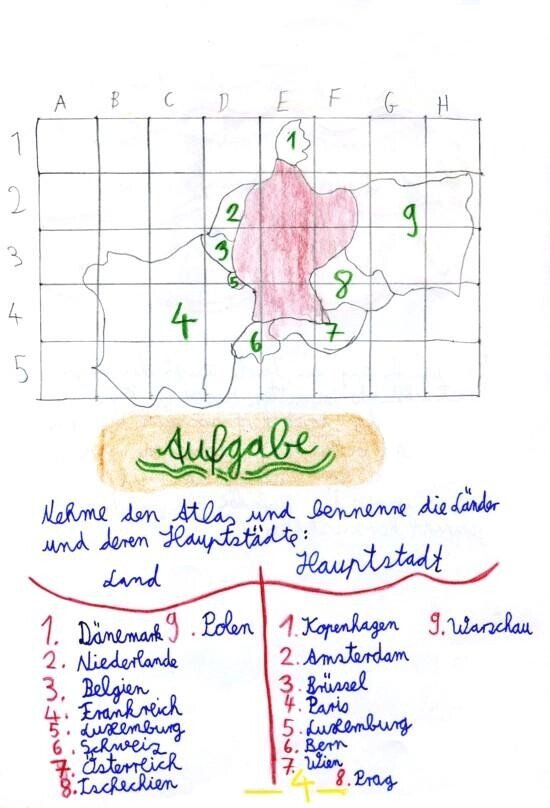 A B C D E F G H
1
2
3
4
5
1
2
9
3
8
5
4
7
6
Aufgabe
Nehme den Atlas und bennenne die Länder
und deren Hauptstädte:
Land
Hauptstadt
1. Dänemark 9. Polen
2. Niederlande
3. Belgien
4. Frankreich
5. Luxemburg
6. Schweiz
7. Österreich
8. Tschechien
1. Kopenhagen 9. Warschau
2. Amsterdam
3. Brüssel
4. Paris
5. Luxemburg
6. Bern
7. Wien
8. Prag
– 4 –